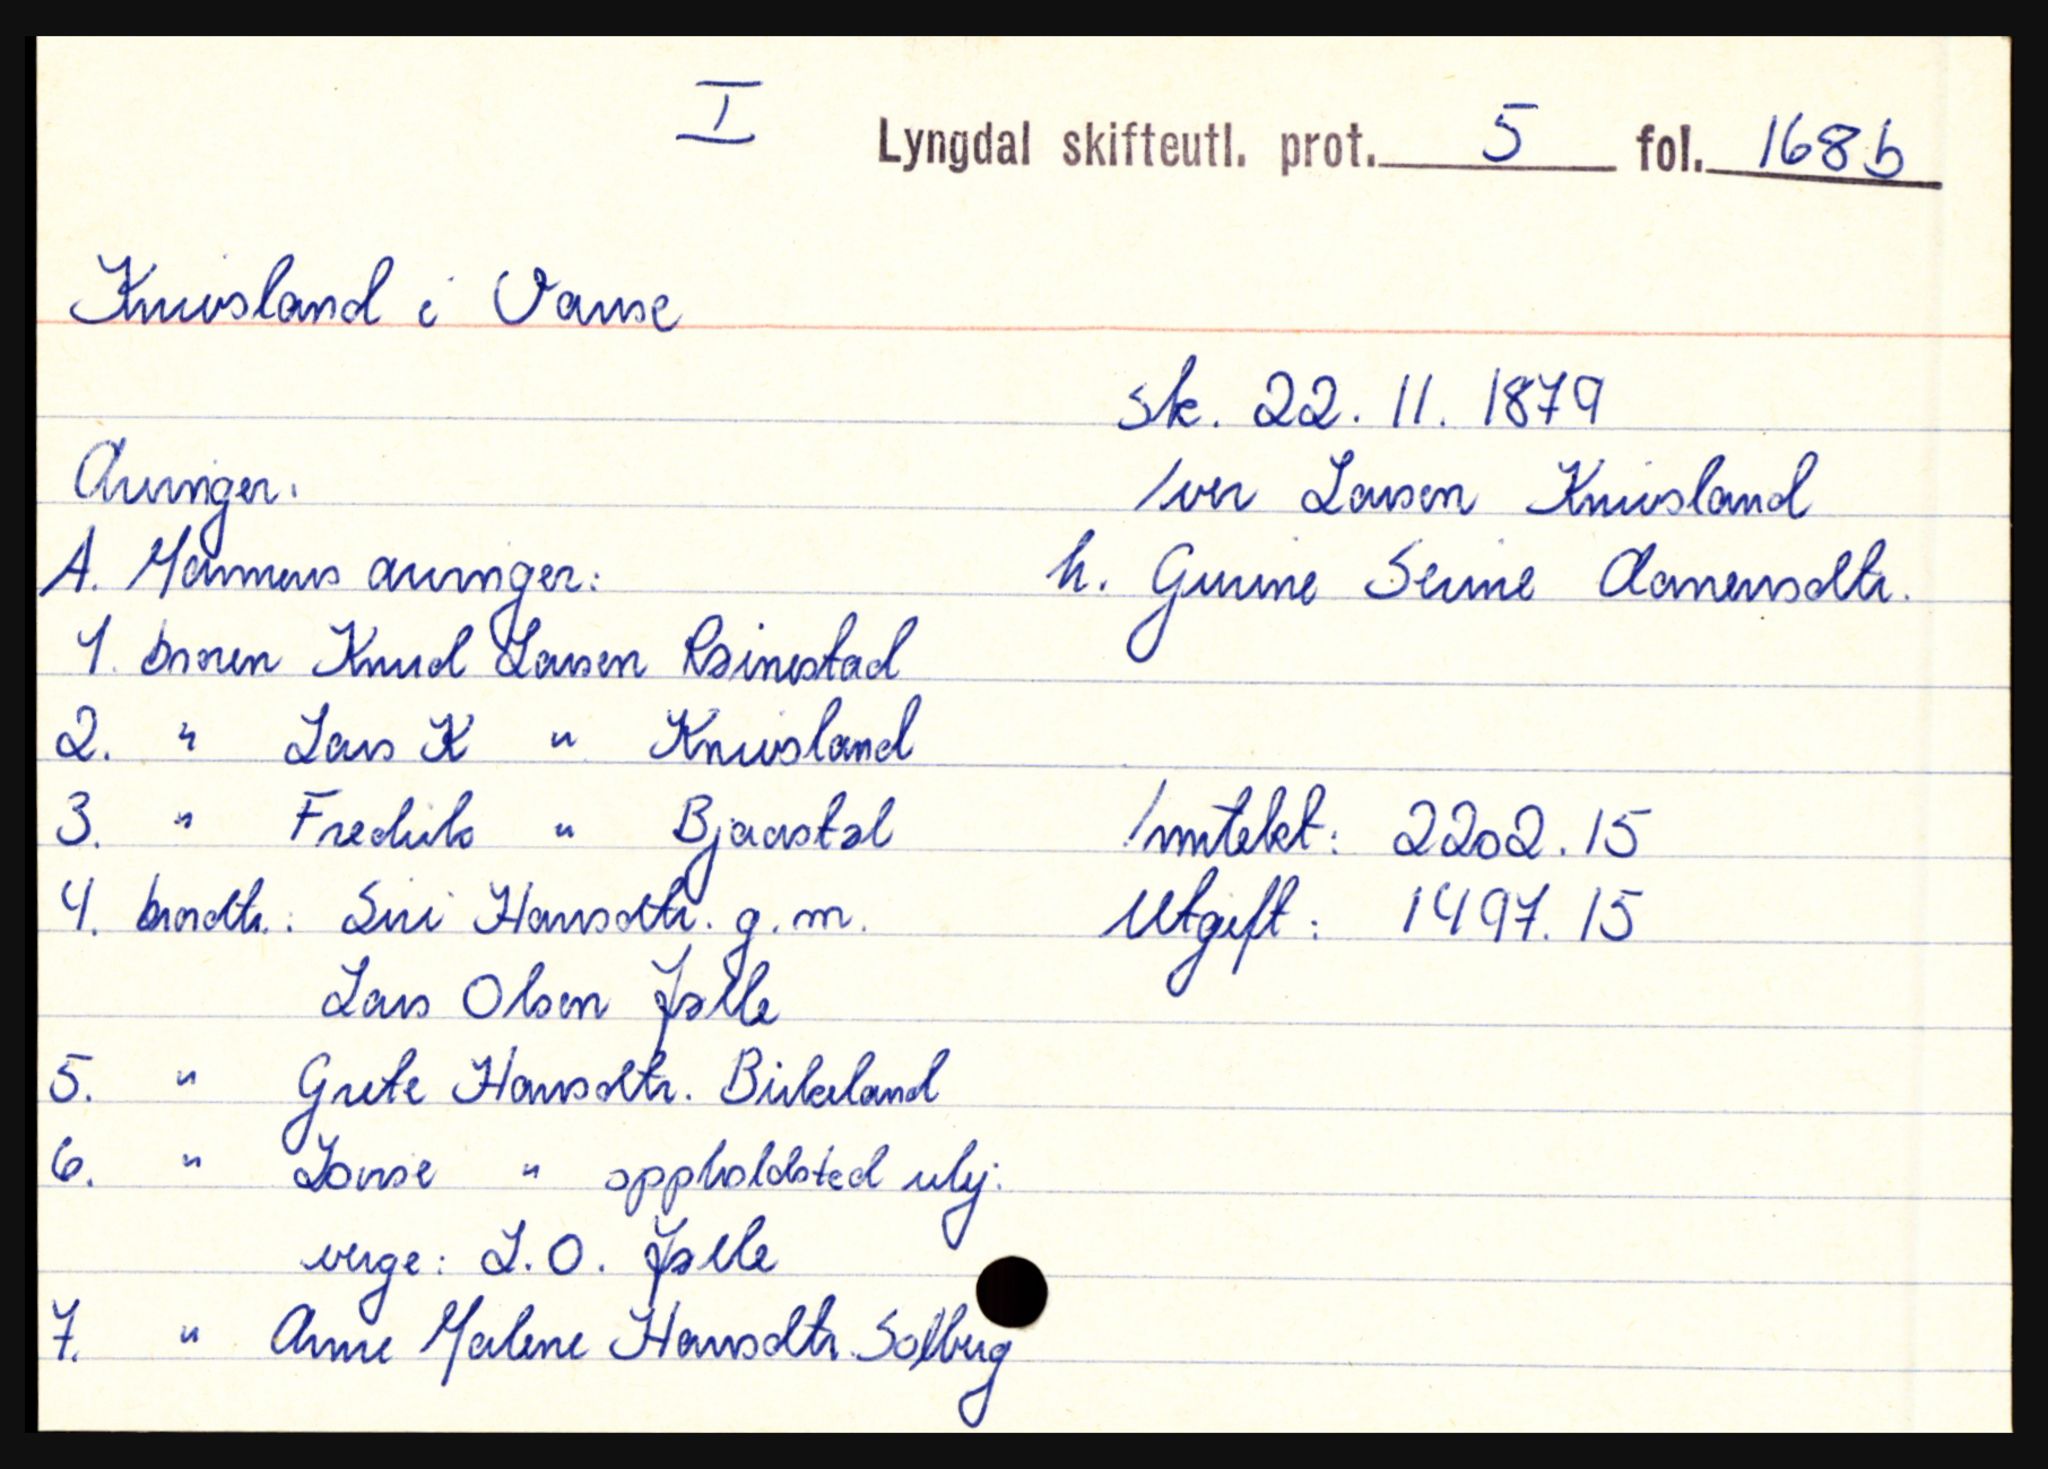 I
Lyngdal skifteutl. prot. 5 fol. 168b
Knivsland i Vanse
sk. 22. 11. 1879
Iver Larsen Knivsland
h. Gurine Serine Aanensdtr.
Arvinger:
A. Mannens arvinger:
1. broren Knud Larsen Reinestad
2. " Lars K " Knivsland
3. " Fredrik " Bjaastøl
4. brordtr.: Siri Hansdtr. g.m.
Lars Olsen Jølle
5. " Grete Hansdtr. Birkeland
6. " Lovise " oppholdsted ubj.
verge: L.O. Jølle
7. " Anne Malene Hansdtr. Solberg
Inntekt: 2202.15
Utgift: 1497.15